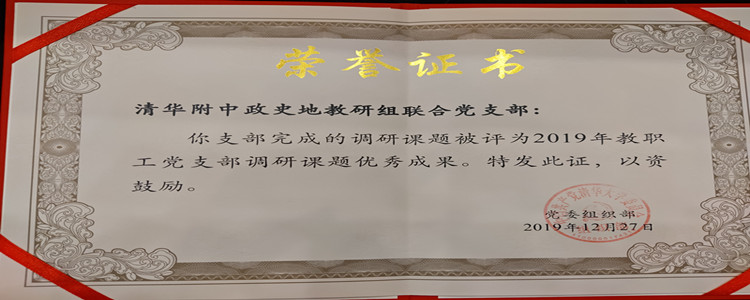 荣誉证书
清华附中政史地教研组联合党支部：
你支部完成的调研课题被评为2019年教职
工党支部调研课题优秀成果。特发此证，以资
鼓励。
党委组织部
2019年12月27日